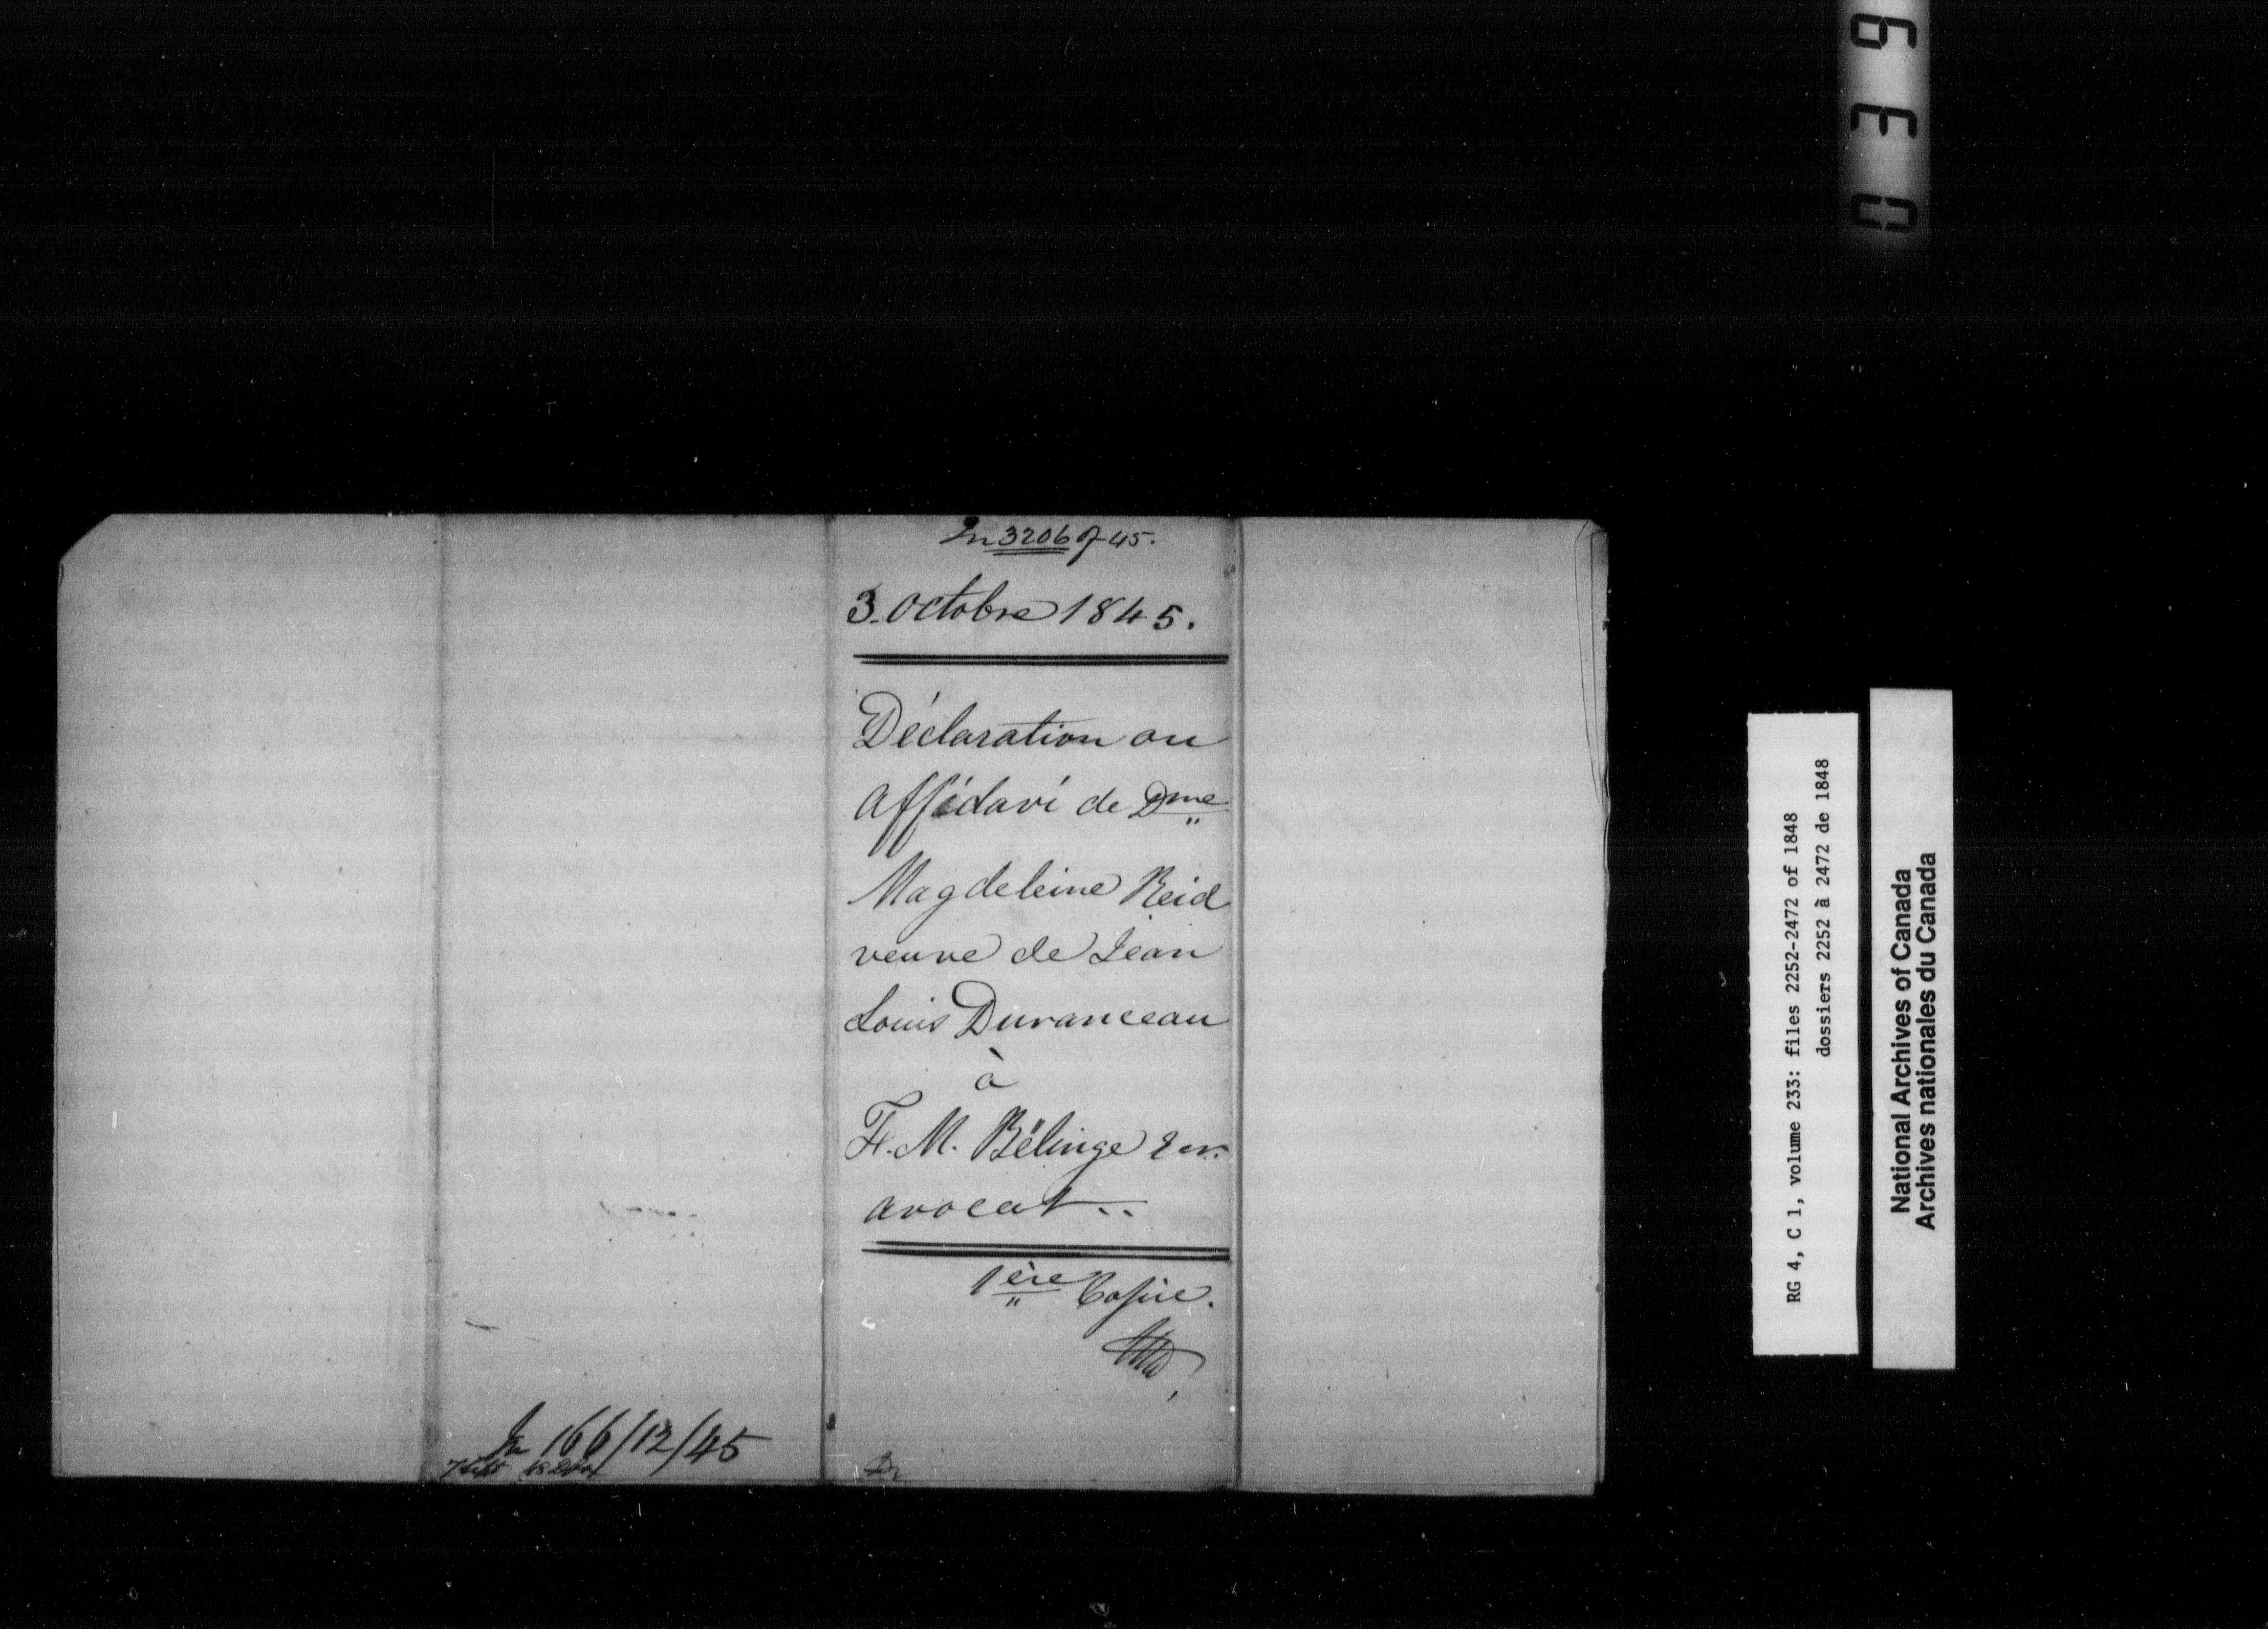 In 3206 of 45.
3 octobre 1845.
Déclaration ou
affidavi de Dme
Magdeleine Reid
veuve de Jean
Louis Duranceau
à
F. M. Bélinge
avocat..
1ère Copie.
In 166/12/45
RG 4, C 1, volume 233: files 2252-2472 of 1848
dossiers 2252 à 2472 de 1848
National Archives of Canada
Archives nationales du Canada
0 3 9